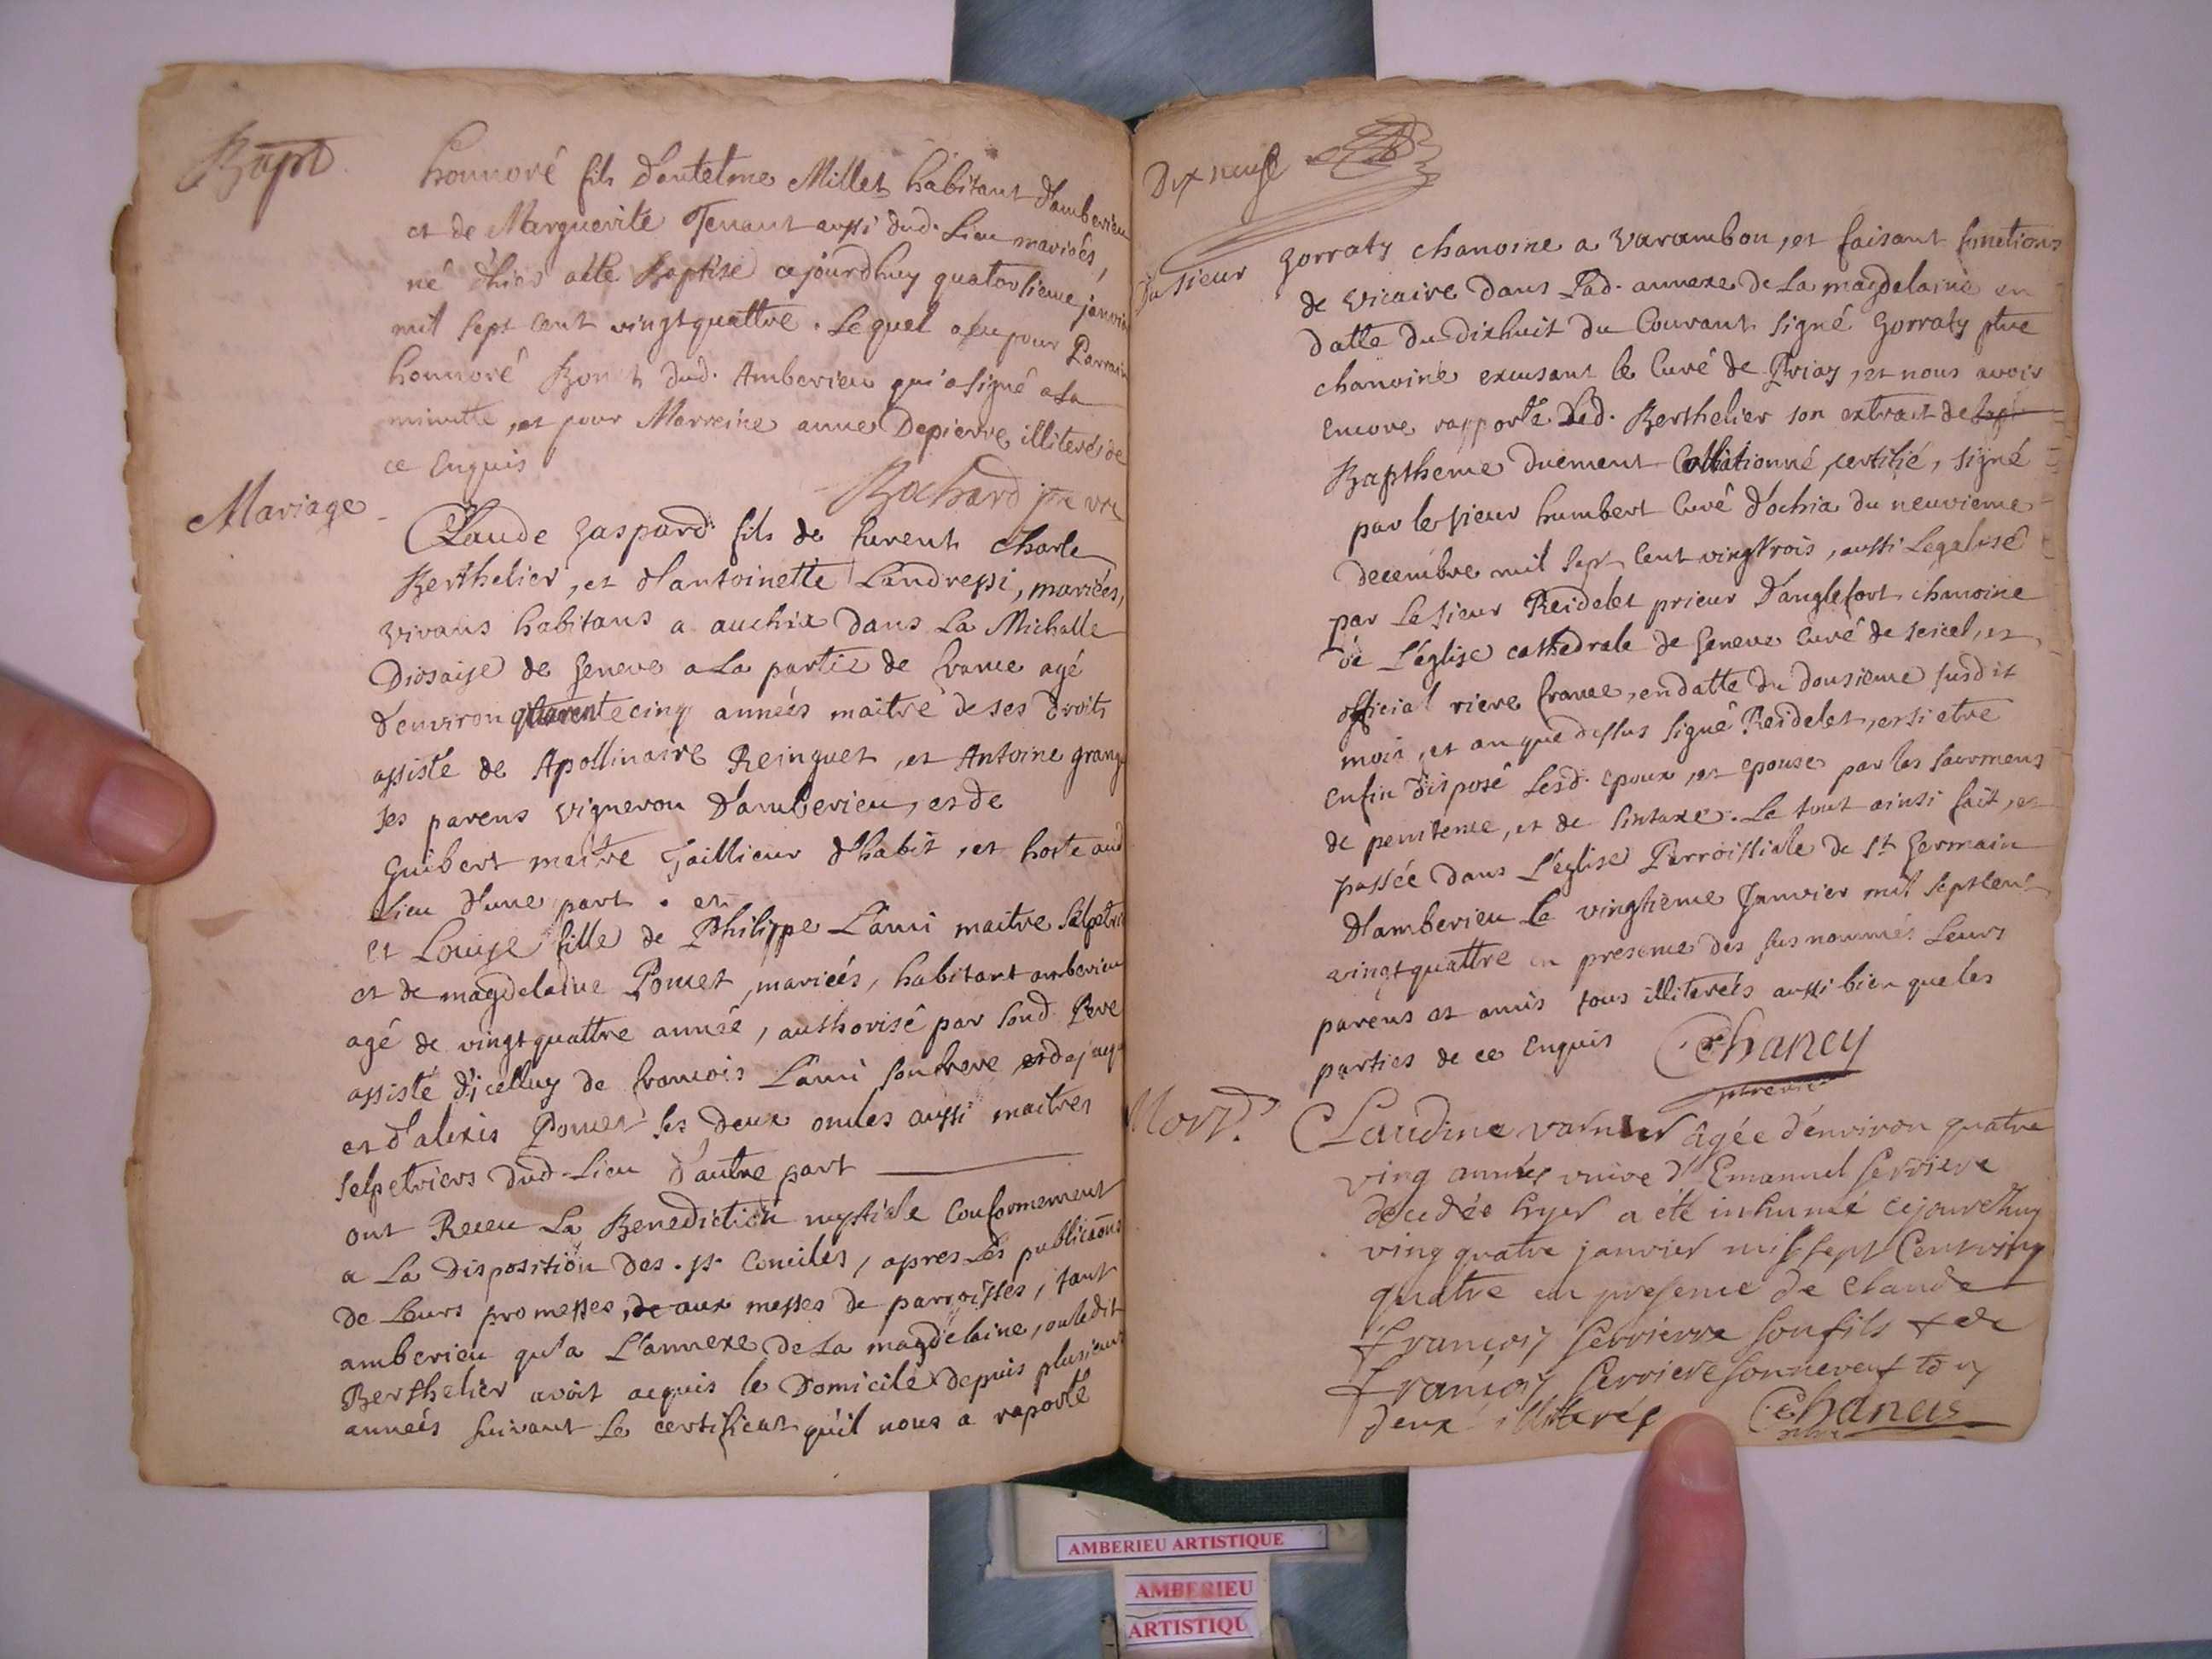 Bapt
honnoré fils d'antelme Millet habitant d'amberieu
et de Marguerite Tenant aussi dud. Lieu mariées,
né d'hier aété Baptisé cejourdhuy quatorsieme janvier
mil sept cent vingtquattre. Lequel a eu pour Parrain
honnoré dud. Amberieu qui a signé a la
minutte, et pour Marreine anne Depierre illiterés de
ce Enquis
Bochard ptre vre
Mariage
Claude gaspard fils de furent charle
Berthelier, et d'antoinette Landressi, mariées,
vivans habitans a auchia dans La Michalle
Diosaise de geneve a La partie de france agé
d'environ quarentecinq années maitre de ses droits
assiste de Apollinaire Reinguet, et Antoine grange
ses parens vigneron d'amberieu, et de
guibert maitre Taillieur d'habit, et hoste aud
Lieu d'une part. et
et Louise fille de Philippe Lami maitre Salpetrie
et de magdelaine Pomet, mariées, habitant amberieu
agé de vingtquattre année, authorisé par sond. Pere
assisté d'icelluy de francois Lami son frere, et de jaque
et d'alexis Pomet ses deux oncles aussi maitres
selpetriers dud. Lieu d'autre part
ont Receu La Benediction nuptiale Conformement
a La Disposition des .SS. Conciles, apres Les publicaons
de Leurs promesses, de aux messes de parroisses, tant
amberieu qu'a L'annexe de La magdelaine, ou ledit
Berthelier avoit acquis le Domicile depuis plusieurs
années suivant Le certificat qu'il nous a raporté
Dix neufe
Du sieur gorraty chanoine a varambon, et faisant fonctions
de vicaire dans Lad. annexe de La magdelaine en
datte du dixhuit du Courant signé gorraty ptre
chanoine excusant le Curé de Priay, et nous avoir
encore rapporté Led. Berthelier son extrait de bapt
Baptheme duement Collationné, certifié, signé
par le sieur humbert Curé d'ochia du neuvieme
decembre mil sept cent vingtrois, aussi Legalisé
par Le sieur Reidelet prieur d'anglefort chanoine
de L'église cathedrale de geneve Curé de seicel, et
official riere france, en datte du dousieme susdit
mois, et an que dessus signé Reidelet, et si etre
Enfin disposé Lesd. epoux, et epouse par les sacrmens
de penitence, et de Sintaxe. Le tout ainsi fait, et
passée dans L'église Parroissiale de St germain
d'amberieu Le vingtieme Janvier mil septcent
vingtquattre en presence des susnommés Leurs
parens et amis tous illiterés aussi bien que les
parties de ce Enquis
Chaney
ptre vic
Mort.
Claudine varnier âgée d'environ quatre
ving années veuve d'Emanuel serriere
decedée hyer a été inhumé cejourdhuy
ving quatre janvier mil sept Cent ving
quatre en presence de Claude
françois serrierre son fils et de
françois serriere son neveux to
deux illiterés
Chaney
AMBERIEU ARTISTIQUE
AMBERIEU
ARTISTIQU